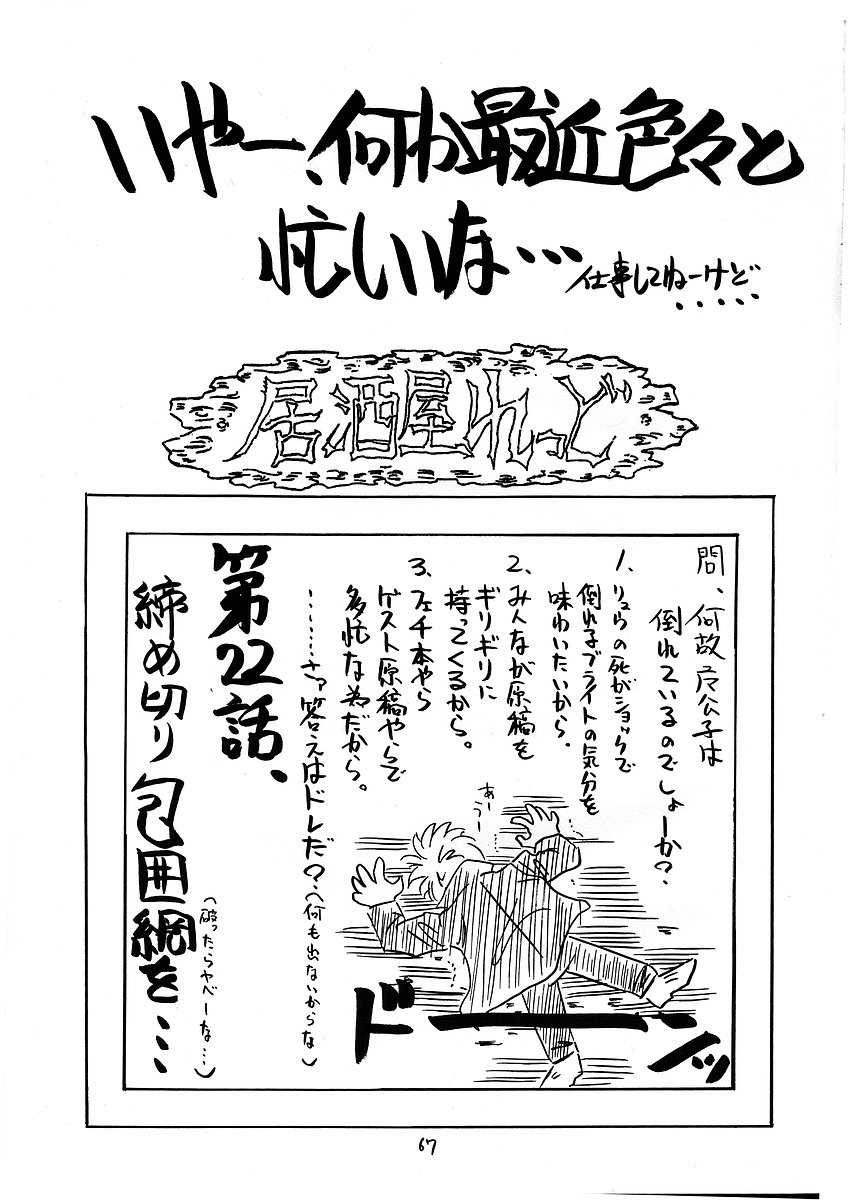 いやー、何か最近色々と
忙しいな…
仕事してねーけど
・・・・・
居酒屋れっど
問、何故 公子は
倒れているのでしょーか？
1、リュウの死がショックで
倒れ子ブライトの気分を
味わいたいから。
2、みんなが原稿を
ギリギリに
持ってくるから。
3、フェチ本やら
ゲスト原稿やらで
多忙な為だから。
………さァ答えはドレだ？（何も出ないからな）
あー
うー
ドーーンッ
第22話、
締め切り包囲網を…
（破ったらヤベーな…）
67